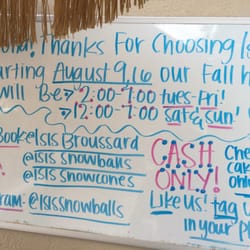 Thanks For Choosing
August 9,16 our Fall h
will Be 12:00-7:00 tues-Fri!
12:00-7:00 sat & sun!
Book @ ISIS Broussard
@ISIS Snowballs
@ISIS Snowcones
@ISISsnowballs
CASH
ONLY!
Like us! tag
in your